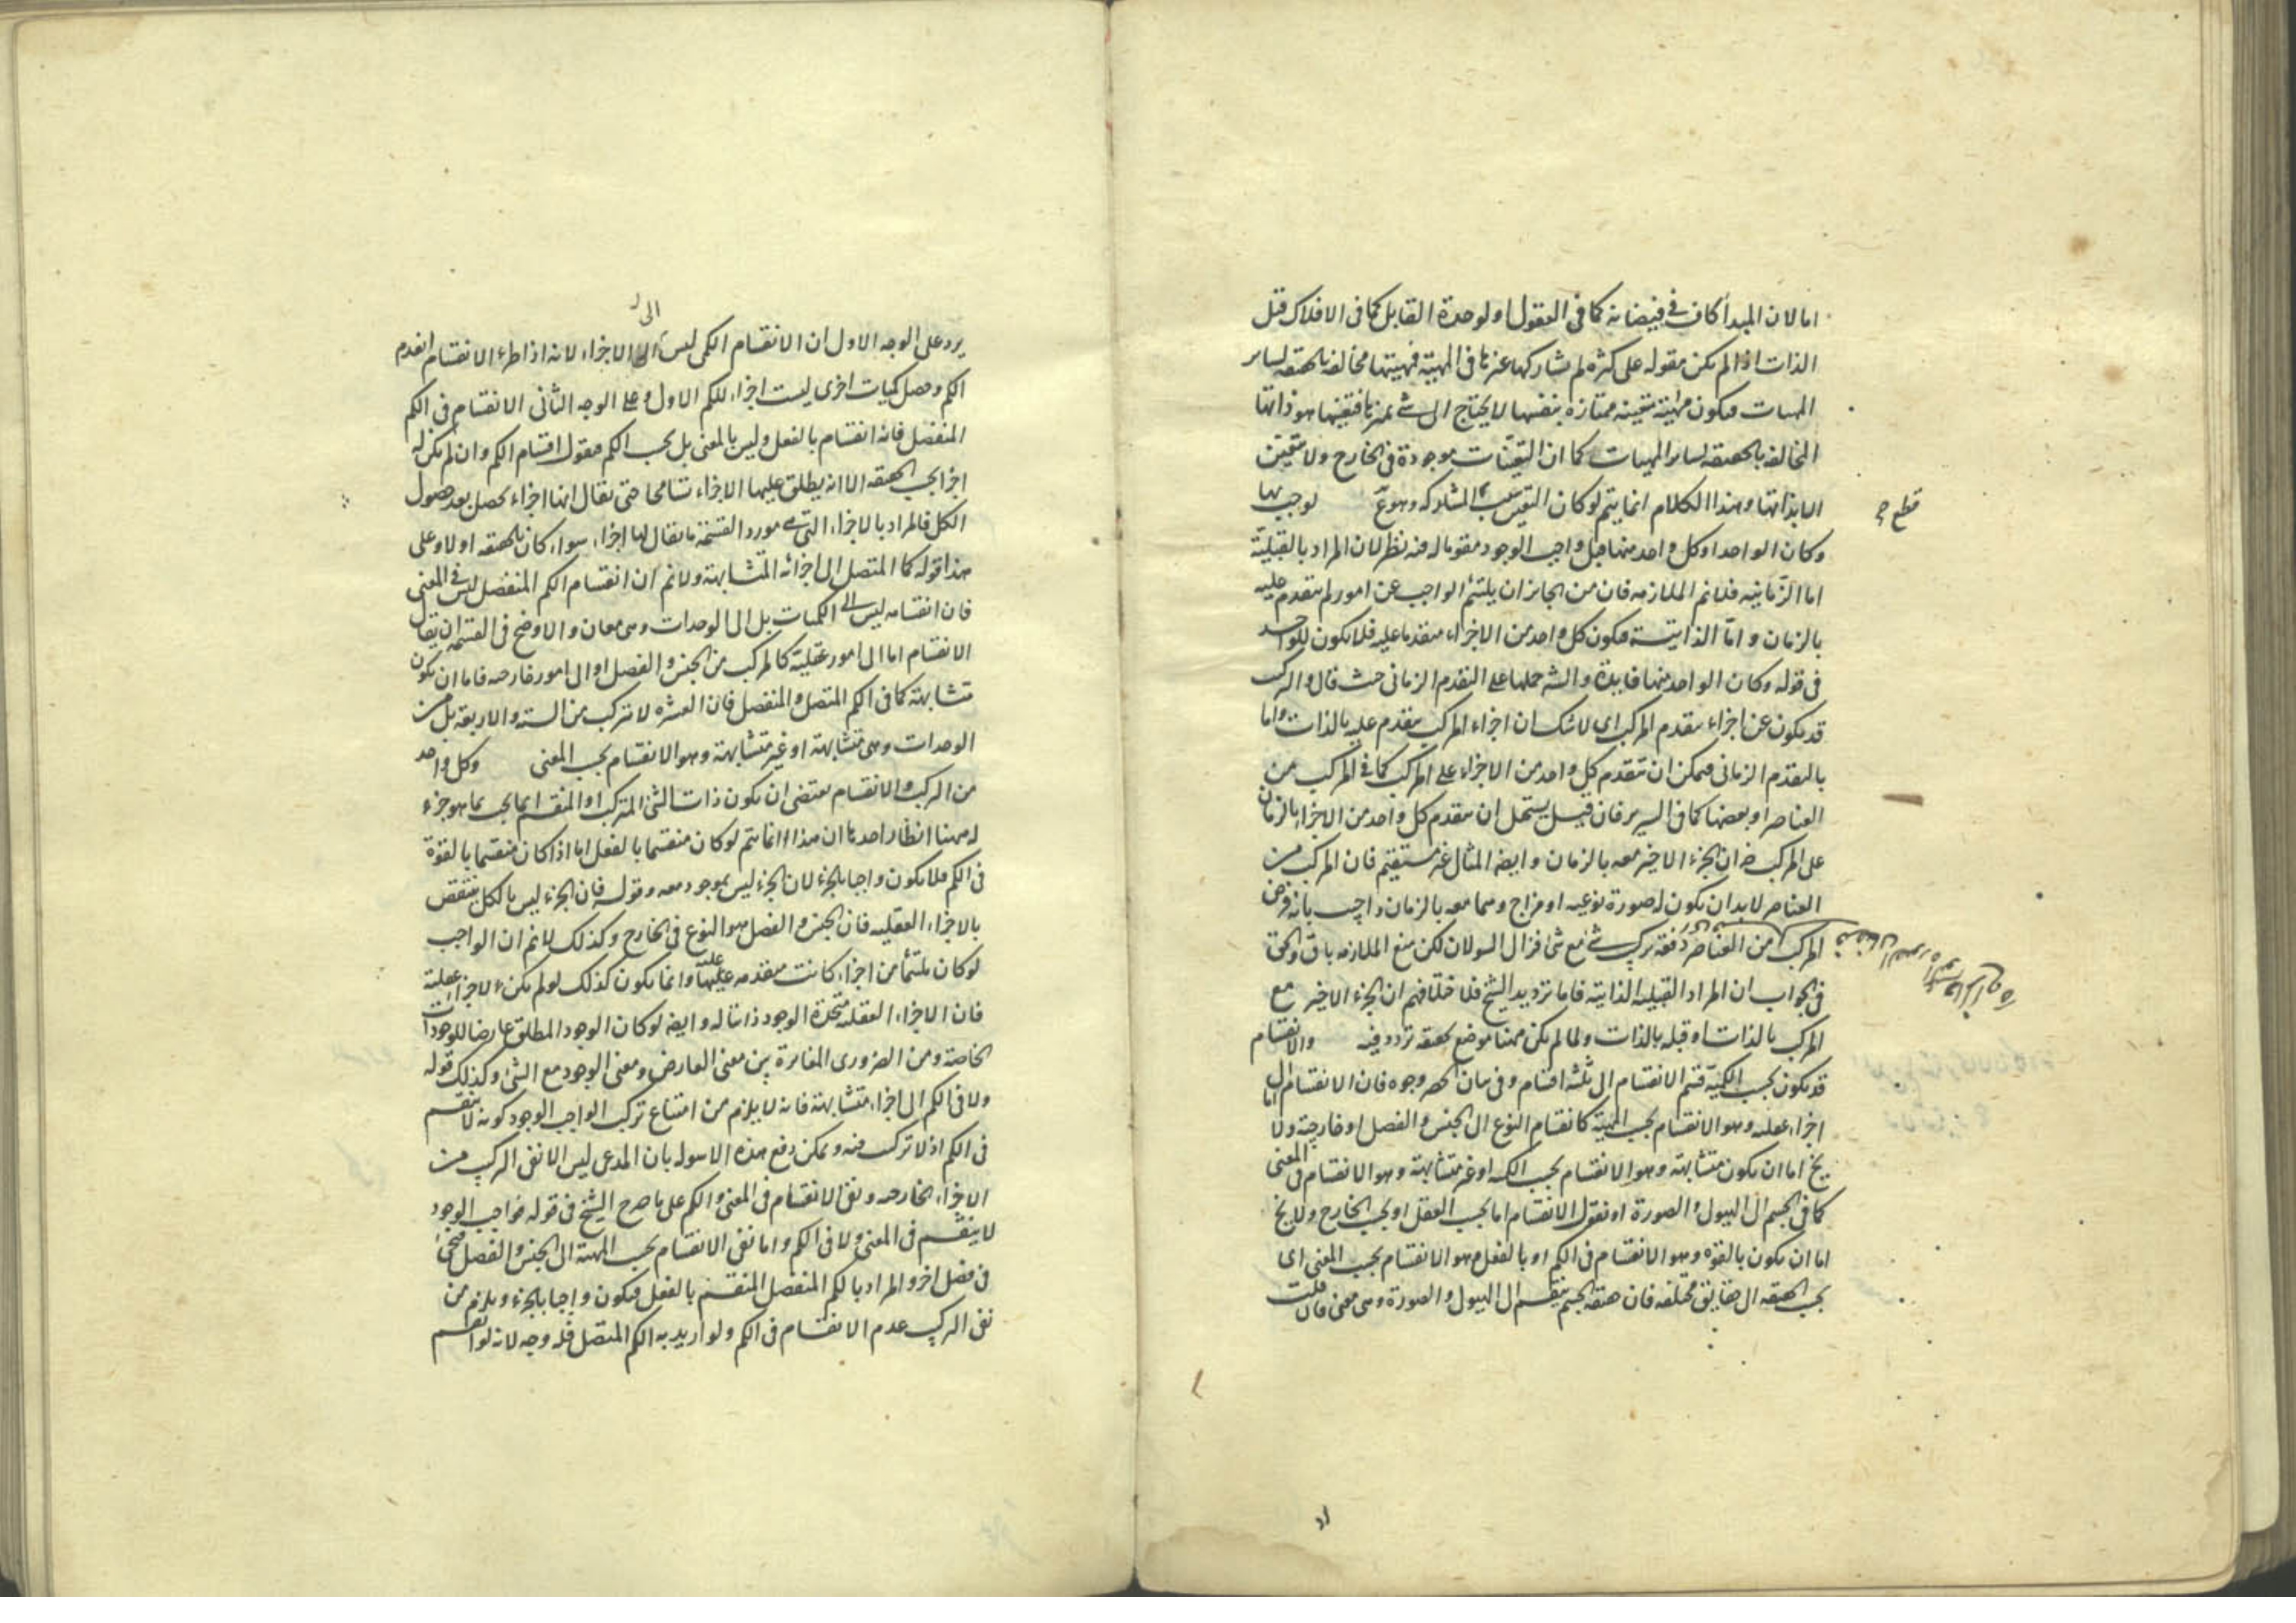 اما لان المبدأ كاف فى فيضانه كما فى العقول او لوحدة القابل كما فى الافلاك قيل
الذات اذا لم يكن مقوله على كثره لم تشاركها غيرها فى المهية فمهيتها مخالفه بالحقيقه لساير
المهيات فيكون مهيته متعينه ممتازه بنفسها لا يحتاج الى شئ يميزها فتعينها هو ذاتها
المخالفه بالحقيقه لساير المهيات كما ان التعينات موجودة فى الخارج ولا تتعين
الا بذاتها وهذا الكلام انما يتم لوكان التعين المشاركه وهو لوجب بها
قطع
وكان الواحد او كل واحد منها قبل واجب الوجود مقوما له فيه نظر لان المراد بالقبلية
اما الزمانيه فلانم الملازمه فان من الجايز ان يلتئم الواجب عن امور لم تتقدم عليه
بالزمان واما الذاتيته فيكون كل واحد من الاجزاء متقدما عليه فلا يكون للواحد
فى قوله وكان الواحد منها فايدة والش حملها على التقدم الزمانى حيث قال والتركيب
قد يكون عن اجزاء يتقدم المركب اى لاشك ان اجزاء المركب يتقدم عليه بالذات واما
بالتقدم الزمانى فيمكن ان يتقدم كل واحد من الاجزاء على المركب كما فى المركب من
العناصر او بعضها كما فى السرير فان قيل يستحيل ان يتقدم كل واحد من الاجزاء بالزمان
على المركب ضر ان الجزء الاخير معه بالزمان وايضا المثال غير مستقيم فان المركب من
العناصر لابد ان يكون له صورة نوعيه او مزاج وهما معه بالزمان واجيب بانه فرض
المركب من العناصر دفعة تركب شئ مع شئ فزال السولان لكن منع الملازمه باق والحق
فى الجواب ان المراد القبليه الذاتيه فاما ترديد الشيخ فلاختلافهم ان الجزء الاخير مع
المركب بالذات او قبله بالذات ولما لم يكن ههنا موضع تحقيقه تردد فيه والانقسام
قد يكون بحسب الكمية قسم الانقسام الى ثلثه اقسام وفى بيان الحصر وجوه فان الانقسام اما الى
اجزاء عقليه وهو الانقسام بحسب المهية كانقسام النوع الى الجنس والفصل او خارجية ولا
يخ اما ان يكون متشابهة وهو الانقسام بحسب الكميه او غير متشابهة وهو الانقسام فى المعنى
كما فى الجسم الى الهيولى والصورة او نقول الانقسام اما بحسب العقل او بحسب الخارج ولا يخ
اما ان يكون بالقوه وهو الانقسام فى الكم او بالفعل وهو الانقسام بحسب المعنى اى
بحسب الحقيقه الى حقايق مختلفه فان حقيقه الجسم ينقسم الى الهيولى والصورة وهى معنى فان قلت
الى
يرد على الوجه الاول ان الانقسام الكمى ليس الى الاجزاء لانه اذا طرء الانقسام انعدم
الكم وحصل كميات اخرى ليست اجزاء للكم الاول وعلى الوجه الثانى الانقسام فى الكم
المنفصل فانه انقسام بالفعل وليس بالمعنى بل بحسب الكم فنقول اقسام الكم وان لم يكن له
اجزا بحسب الحقيقه الا انه يطلق عليها الاجزاء تسامحا حتى يقال انها اجزاء تحصل بعد حصول
الكل فالمراد بالاجزاء التى هى مورد القسمة ما يقال لها اجزاء سواء كان بالحقيقه او لا وعلى
هذا قوله كما المتصل الى اجزائه المتشابهة ولانم ان انقسام الكم المنفصل ليس فى المعنى
فان انقسامه ليس الى الكميات بل الى الوحدات وهى معان والاوضح فى القسمه ان يقال
الانقسام اما الى امور عقلية كالمركب من الجنس والفصل او الى امور خارجه فاما ان يكون
متشابهة كما فى الكم المتصل والمنفصل فان العشره لا تتركب من السته والاربعه بل من
الوحدات وهى متشابهة او غير متشابهة وهو الانقسام بحسب المعنى وكل واحد
من التركب والانقسام يقتضى ان يكون ذات الشئ المتركب او المنقسم انما يجب بما هو جزء
له ههنا انظار احدها ان هذا انما يتم لوكان منقسما بالفعل اما اذا كان منقسما بالقوة
فى الكم فلا يكون واجبا بالجزء لان الجزء ليس بموجود معه وقوله فان الجزء ليس بالكل ينتقض
بالاجزاء العقليه فان الجنس والفصل هو النوع فى الخارج وكذلك لانم ان الواجب
لوكان ملتئما من اجزاء كانت متقدمه عليها وانما يكون كذلك لو لم يكن الاجزاء عقلية
فان الاجزاء العقليه متحدة الوجود ذاتا له وايضا لوكان الوجود المطلق عارضا للوجودات
الخاصة ومن الضرورى المغايرة بين معنى العارض ومعنى الوجود مع الشئ وكذلك قوله
ولا فى الكم الى اجزاء متشابهة فانه لا يلزم من امتناع تركب الواجب الوجود كونه لا ينقسم
فى الكم اذ لا تركب فيه ويمكن دفع هذه الاسوله بان المدعى ليس الا نفى التركيب من
الاجزاء الخارجه ونفى الانقسام فى المعنى والكم على ما صرح الشيخ فى قوله فواجب الوجود
لا ينقسم فى المعنى ولا فى الكم واما نفى الانقسام بحسب المهية الى الجنس والفصل فيجئ
فى فصل اخر والمراد بالكم المنفصل المنقسم بالفعل فيكون واجبا بالجزء ويلزم من
نفى التركيب عدم الانقسام فى الكم ولو اريد به الكم المتصل فله وجه لانه لو انقسم